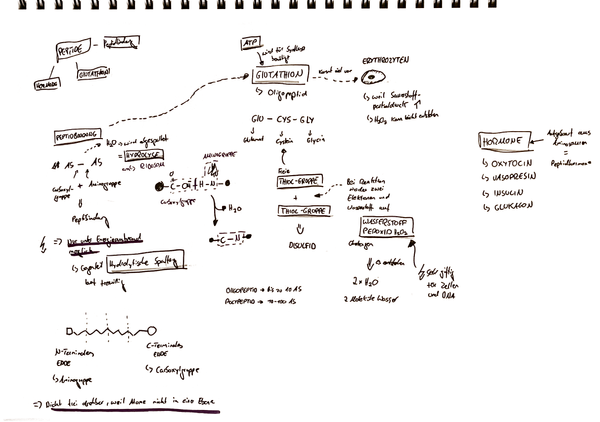 PEPTIDE – Peptidbindung
HORMONE
GLUTATHION
ATP
wird für Synthese
benötigt
GLUTATHION
↳ Oligopeptid
kommt viel vor
ERYTHROZYTEN
↳ weil Sauerstoff-
partialdruck ↑
↳ H₂O₂ kann nicht entstehen
GLU – CYS – GLY
Glutamat
Cystein
Glycin
PEPTIDBINDUNG
H₂O wird abgespalten
= HYDROLYSE
AS – AS
Carboxyl-
gruppe
+ Aminogruppe
Peptidbindung
AMINOGRUPPE
O
– C – OH + H – N –
Carboxylgruppe
H₂O
– C – N –
Freie
THIOL-GRUPPE
+
THIOL-GRUPPE
DISULFID
Bei Reaktion
werden zwei
Elektronen und
Wasserstoff auf
WASSERSTOFF
PEROXID H₂O₂
übertragen
es entstehen
2 x H₂O
2 Moleküle Wasser
sehr giftig
für Zellen
und DNA
HORMONE
Aufgebaut aus
Aminosäuren
=
Peptidhormone
↳ OXYTOCIN
↳ VASOPRESIN
↳ INSULIN
↳ GLUKAGON
=> Nur unter Energieaufwand
möglich
↳ Gegenteil
Hydrolytische Spaltung
läuft freiwillig
OLIGOPEPTID → bis zu 10 AS
POLYPEPTID → 10-100 AS
N-Terminales
ENDE
↳ Aminogruppe
C-Terminales
ENDE
↳ Carboxylgruppe
=> Nicht frei drehbar, weil Atome nicht in einer Ebene